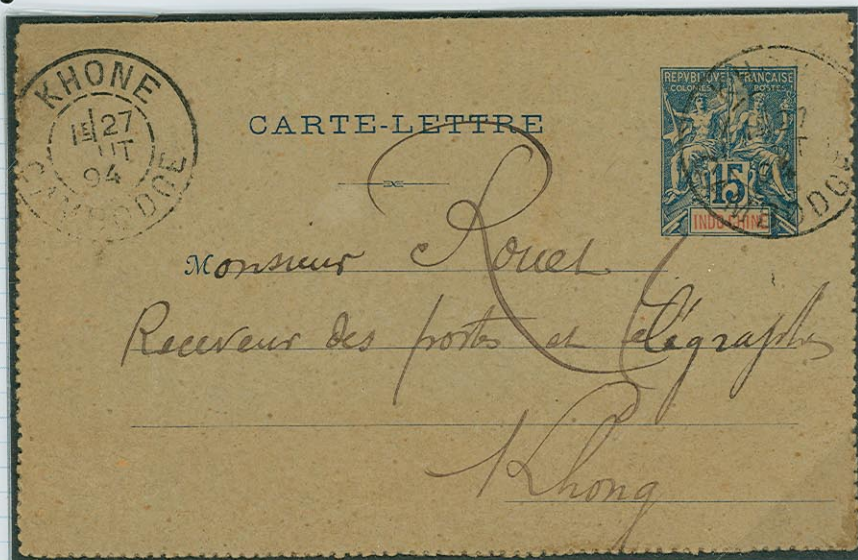 KHONE
1E 27
94
CAMBODGE
CARTE-LETTRE
REPVBLIQVE FRANÇAISE
COLONIES POSTES
15
INDO-CHINE
Monsieur Rouet
Receveur des postes et télégraphes
Khong